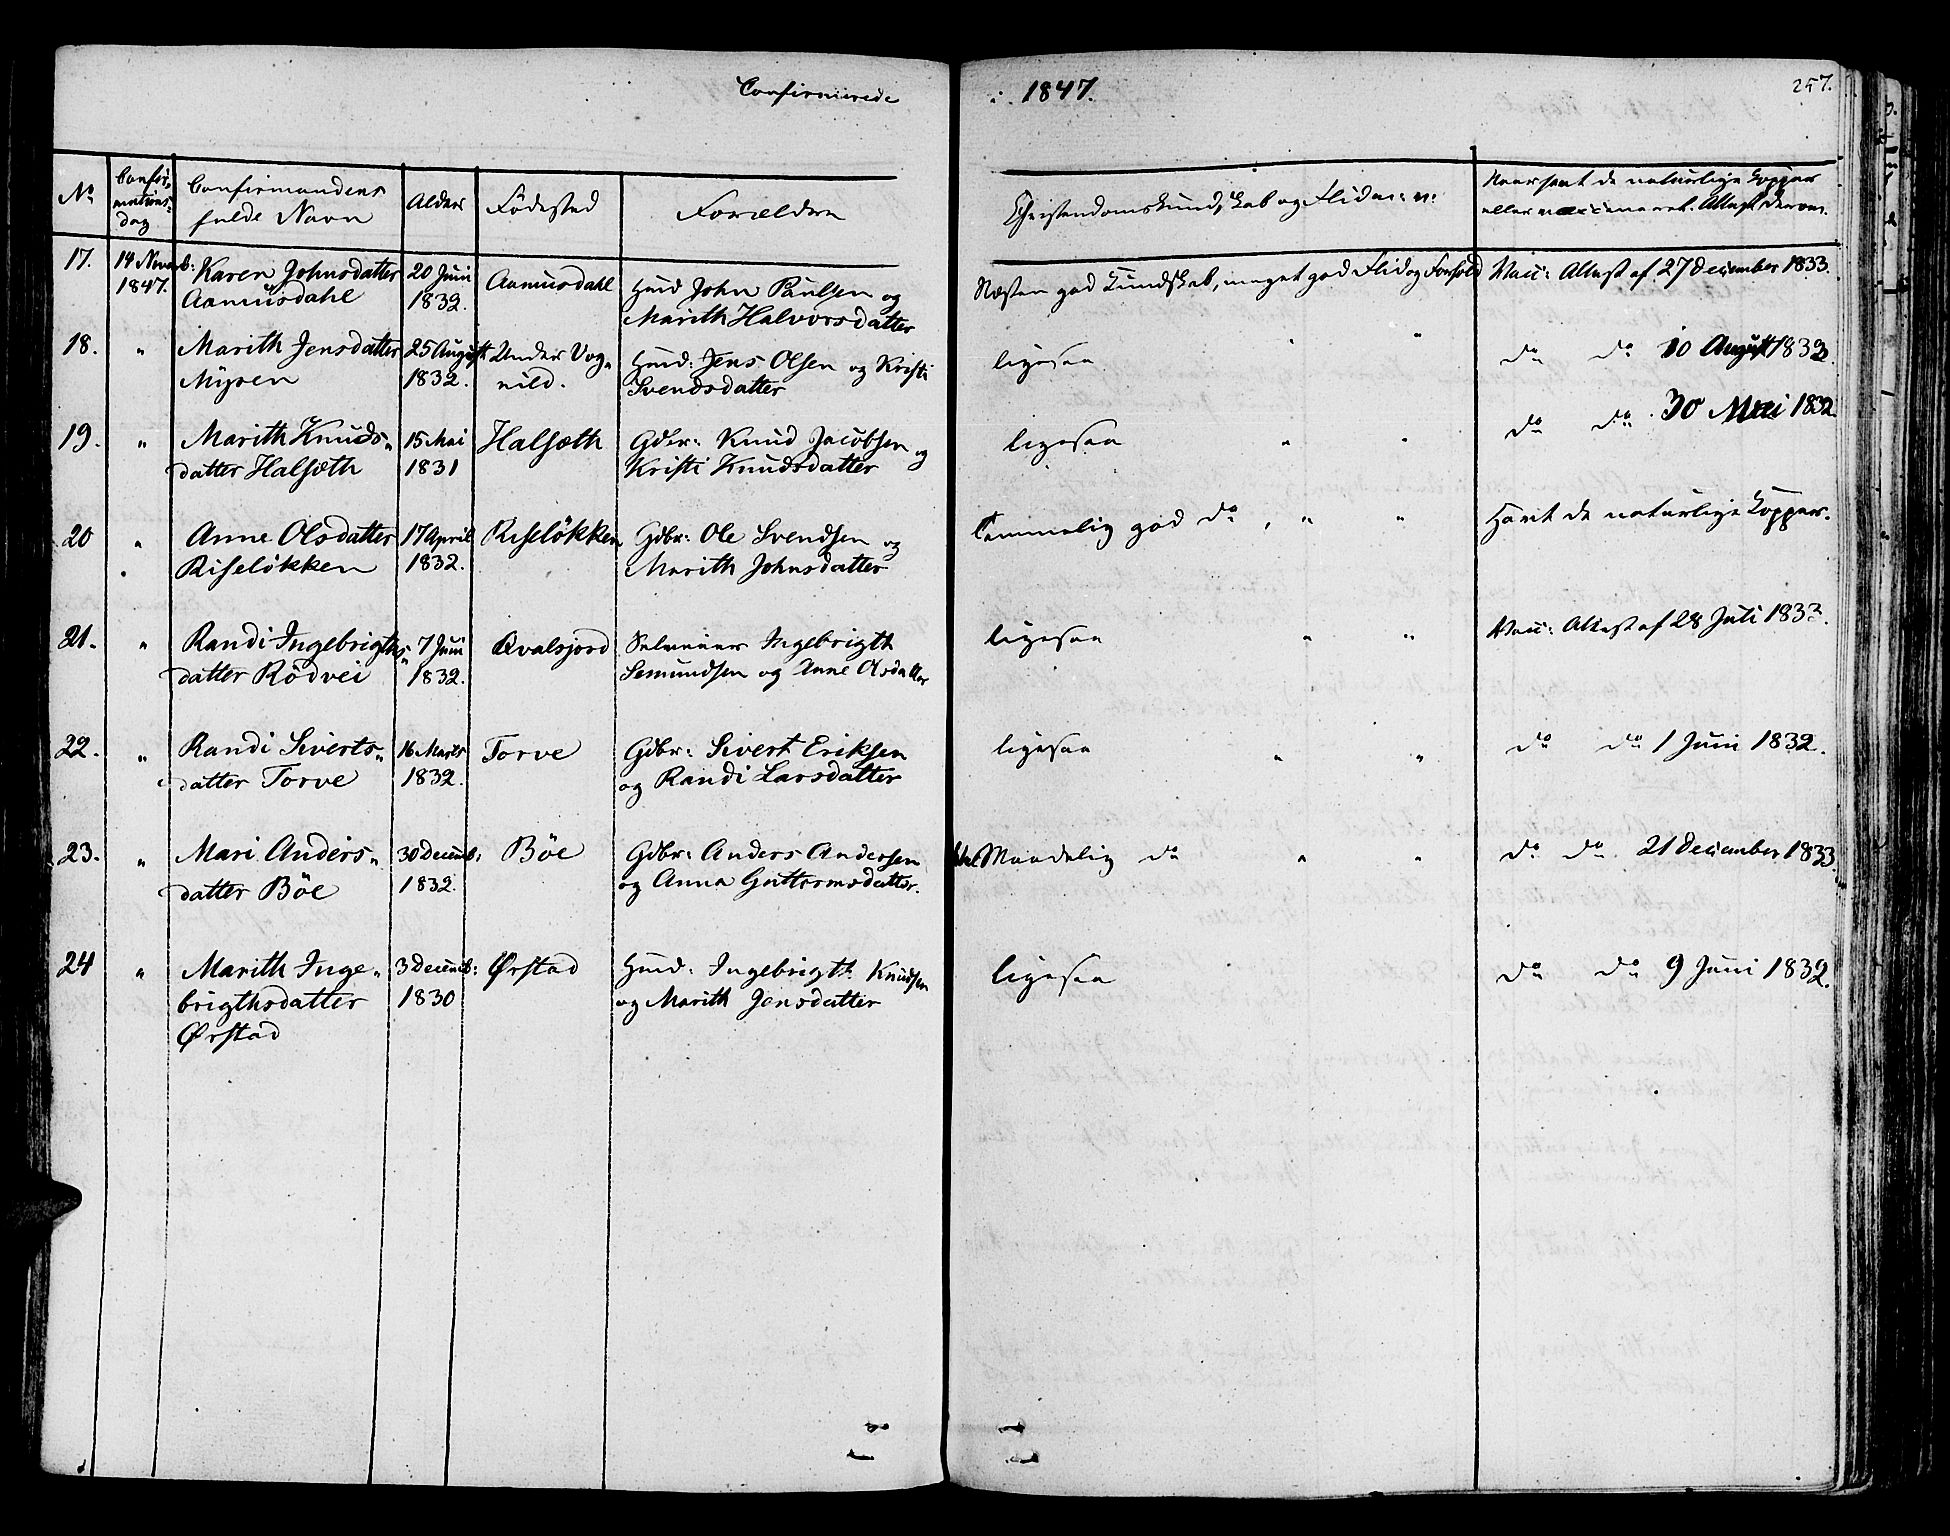 Confirmerede
i 1847.
257.
No
Confir-
mations-
dag
Confirmandens
fulde Navn
Alder
Födested
Forældre
Christendomskundskab og Flid m: v:
Naar havt de naturlige Kopper
eller vaccineret. Attest derom.
17.
14 Novemb:
1847.
Karen Johnsdatter
Aamusdahl
20 Juni
1832.
Aamusdahl
Huusm John Paulsen og
Marith Halvorsdatter
Næsten god Kundskab, meget god Flid og Forhold
Vacc: Attest af 27 December 1833.
18.
"
Marith Jensdatter
Myren
25 August
1832.
Under Vog-
nild.
Huusm: Jens Olsen og Kristi
Svendsdatter
ligesaa " "
do do 10 August 1833.
19.
"
Marith Knuds-
datter Halsæth
15 Mai
1831
Halsæth
Gdbr: Knud Jacobsen og
Kristi Knudsdatter
ligesaa " "
do do 30 Mai 1832
20
"
Anne Olsdatter
Riseløkken
17 April
1832.
Riseløkken
Gdbr: Ole Svendsen og
Marith Johnsdatter
Temmelig god do, " "
Havt de naturlige Kopper.
21.
"
Randi Ingebrigths-
datter Rödvei
7 Juni
1832.
Qvalsjord
Ingebrigth
Semundsen og Anne Olsdatter
ligesaa " "
Vacc: Attest af 28 Juli 1833.
22.
"
Randi Siverts-
datter Torve
16 Marts
1832.
Torve
Gdbr: Sivert Eriksen
og Randi Larsdatter
ligesaa " "
do do 1 Juni 1832.
23.
"
Mari Anders-
datter Böe
30 Decemb:
1832.
Böe
Gdbr: Anders Andersen
og Anna Guttormsdatter.
Maadelig do " "
do do 21 December 1833.
24
"
Marith Inge-
brigthsdatter
Ørstad
3 Decemb:
1830
Ørstad
Huusm: Ingebrigth Knudsen
og Marith Jensdatter
ligesaa
do do 9 Juni 1832.